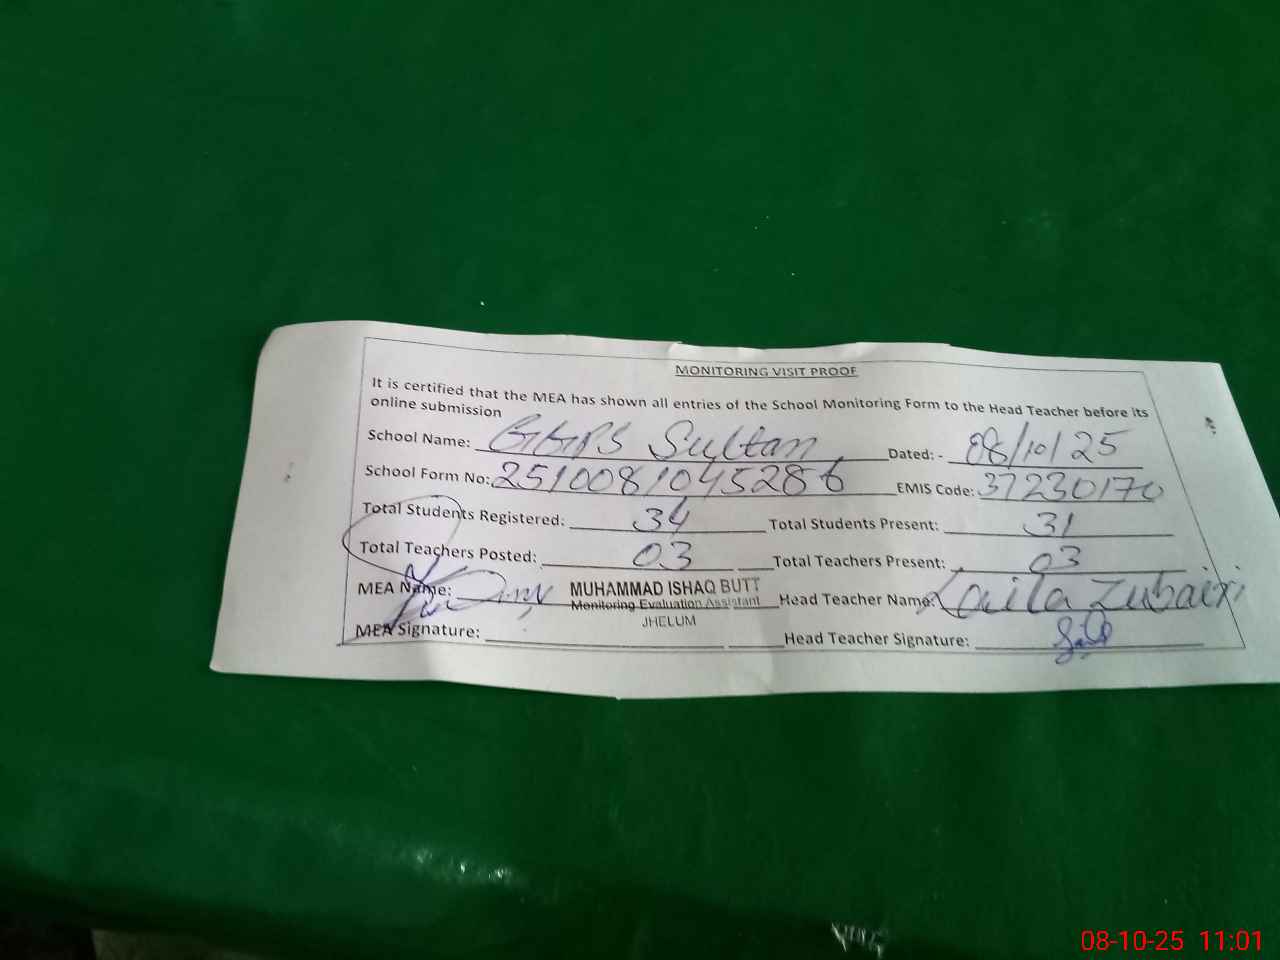 MONITORING VISIT PROOF
It is certified that the MEA has shown all entries of the School Monitoring Form to the Head Teacher before its
online submission
School Name: GGPS Sultan Dated: - 08/10/25
School Form No: 2510081045286 EMIS Code: 37230170
Total Students Registered: 34 Total Students Present: 31
Total Teachers Posted: 03 Total Teachers Present: 03
MEA Name: MUHAMMAD ISHAQ BUTT Head Teacher Name: Laila Zubairi
Monitoring Evaluation Assistant
JHELUM
MEA Signature: Head Teacher Signature:
08-10-25 11:01